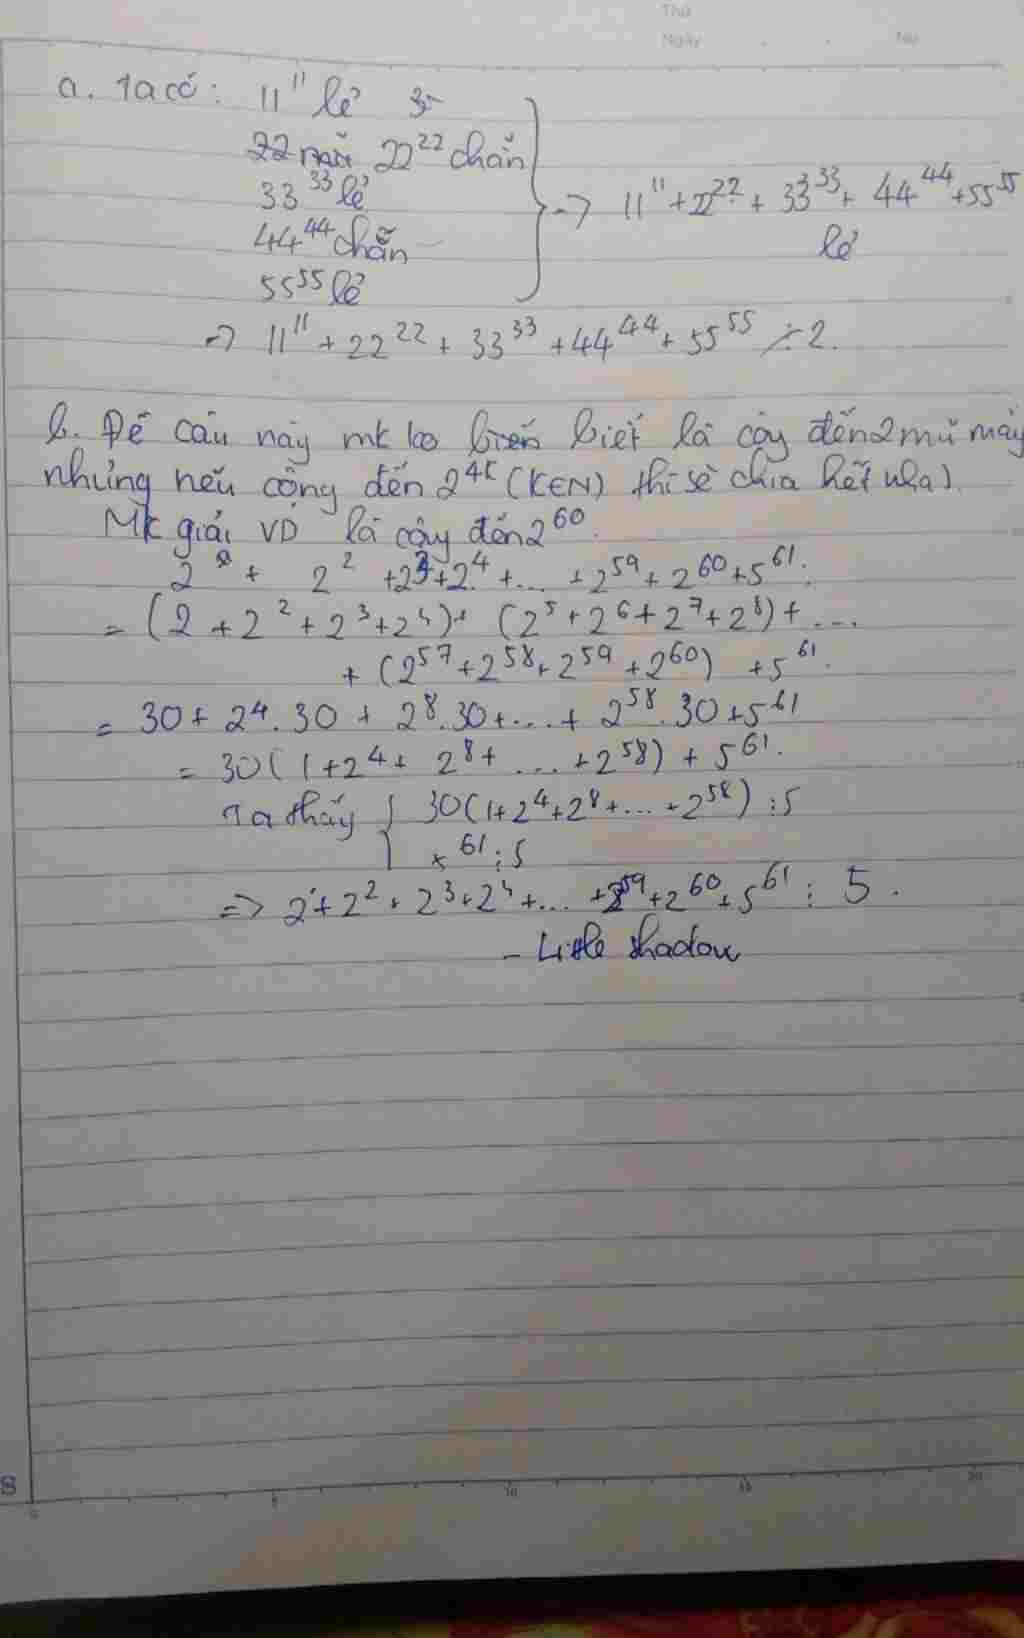 Thứ
Ngày . . No
a. Ta có: 11¹¹ lẻ
22²² chẵn
33³³ lẻ
44⁴⁴ chẵn
55⁵⁵ lẻ
=> 11¹¹ + 22²² + 33³³ + 44⁴⁴ + 55⁵⁵
lẻ
=> 11¹¹ + 22²² + 33³³ + 44⁴⁴ + 55⁵⁵ ⋮̸ 2.
b. Đề câu này mk ko biết là cộg đến 2 mũ mấy
nhưng nếu cộng đến 2⁴ᴷ (K∈N) thì sẽ chia hết nha).
Mk giải VD là cộg đến 2⁶⁰.
2 + 2² + 2³ + 2⁴ + ... + 2⁵⁹ + 2⁶⁰ + 5⁶¹.
= (2 + 2² + 2³ + 2⁴) + (2⁵ + 2⁶ + 2⁷ + 2⁸) + ...
+ (2⁵⁷ + 2⁵⁸ + 2⁵⁹ + 2⁶⁰) + 5⁶¹.
= 30 + 2⁴.30 + 2⁸.30 + ... + 2⁵⁸.30 + 5⁶¹
= 30(1 + 2⁴ + 2⁸ + ... + 2⁵⁸) + 5⁶¹.
Ta thấy { 30(1 + 2⁴ + 2⁸ + ... + 2⁵⁸) ⋮ 5
⁶¹ ⋮ 5
=> 2 + 2² + 2³ + 2⁴ + ... + 2⁵⁹ + 2⁶⁰ + 5⁶¹ ⋮ 5.
- Little shadow
S
0 5 10 15 20